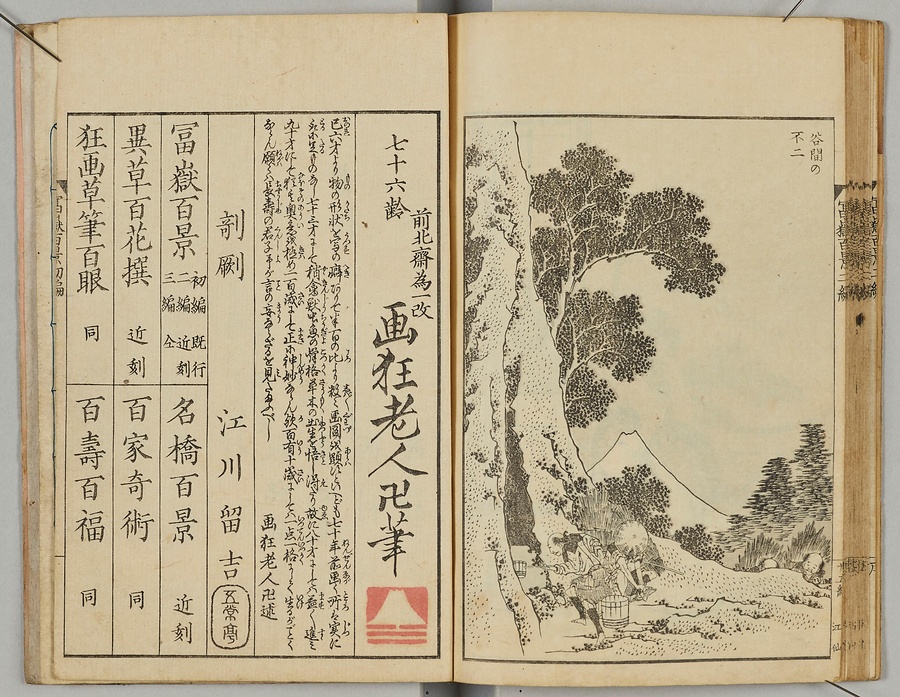 谷間の
不二
七十六齢
前北斎為一改
画狂老人卍筆
己六才より物の形状を写の癖ありて半百の比より数々画図を顕すといへども七十年前画く所は実に
取に足ものなし七十三才にして稍禽獣虫魚の骨格草木の出生を悟し得たり故に八十才にしては益々進み
九十才にして猶其奥意を極め一百歳にして正に神妙ならん欤百有十歳にしては一点一格にして生るがごとく
ならん願くは長寿の君子予が言の妄ならざるを見たまふべし
画狂老人卍述
剞劂 江川留吉 五常亭
冨嶽百景 初編 既行
二編 近刻
三編 仝
名橋百景 近刻
異草百花撰 近刻
百家奇術 同
狂画草筆百眼 同
百壽百福 同